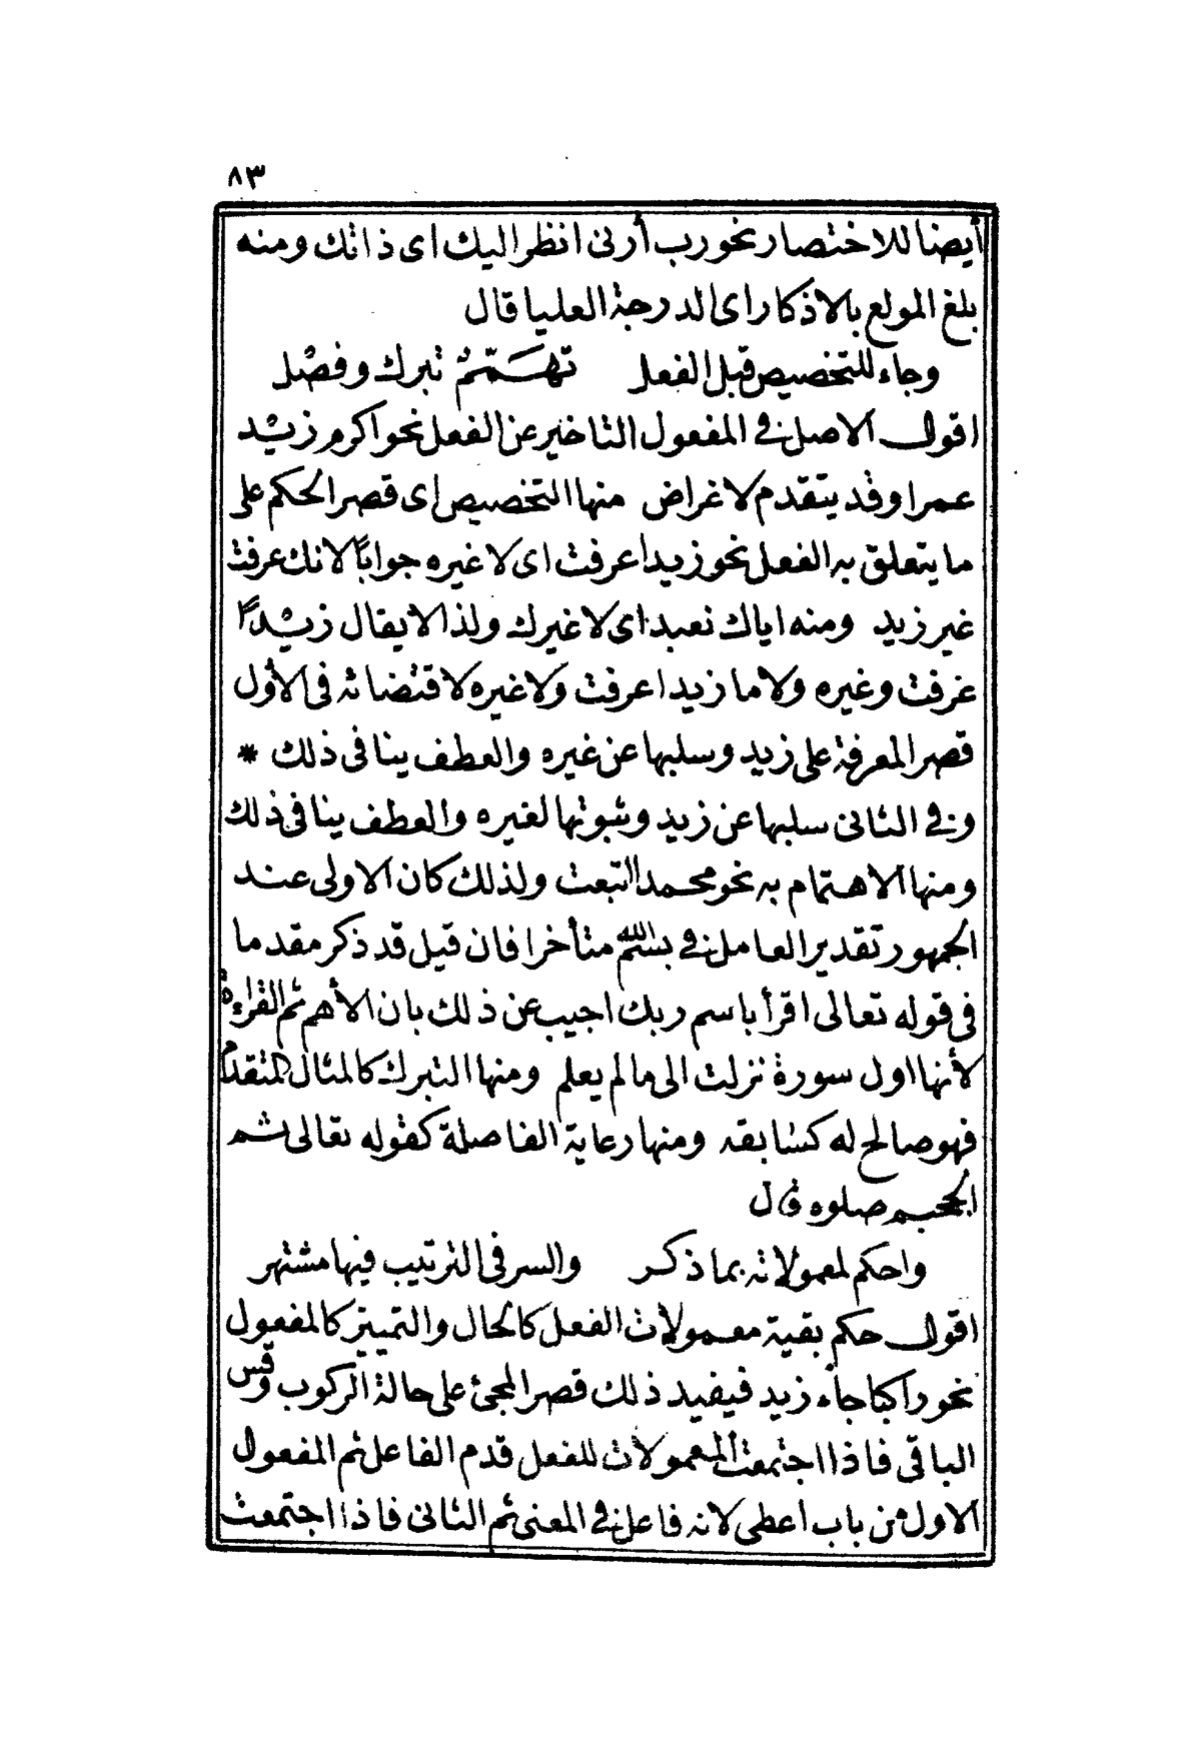 ٨٣
أيضا للاختصار نحو رب أرنى انظر اليك اى ذاتك ومنه
بلغ المولع بالاذكار اى الدرجة العليا قال
وجاء للتخصيص قبل الفعل تهمم تبرك وفصل
اقول الاصل فى المفعول التاخير عن الفعل نحو اكرم زيد
عمرا وقد يتقدم لاغراض منها التخصيص اى قصر الحكم على
ما يتعلق به الفعل نحو زيدا عرفت اى لا غيره جوابا لانك عرفت
غير زيد ومنه اياك نعبد اى لا غيرك ولذا لا يقال زيدا
عرفت وغيره ولا ما زيدا عرفت ولا غيره لاقتضائه فى الأول
قصر المعرفة على زيد وسلبها عن غيره والعطف ينافى ذلك *
وفى الثانى سلبها عن زيد وثبوتها لغيره والعطف ينافى ذلك
ومنها الاهتمام به نحو محمدا اتبعت ولذلك كان الاولى عند
الجمهور تقدير العامل فى بسم الله متأخرا فان قيل قد ذكر مقدما
فى قوله تعالى اقرأ باسم ربك اجيب عن ذلك بان الأهم ثم القراءة
لأنها اول سورة نزلت الى ما لم يعلم ومنها التبرك كالمثال المتقدم
فهو صالح له كسابقه ومنها رعاية الفاصلة كقوله تعالى ثم
الجحيم صلوه قال
واحكم لمعمولاته بما ذكر والسر فى الترتيب فيها مشتهر
اقول حكم بقية معمولات الفعل كالحال والتمييز كالمفعول
نحو راكبا جاء زيد فيفيد ذلك قصر المجئ على حالة الركوب وقس
الباقى فاذا اجتمعت المعمولات للفعل قدم الفاعل ثم المفعول
الاول من باب اعطى لانه فاعل فى المعنى ثم الثانى فاذا اجتمعت